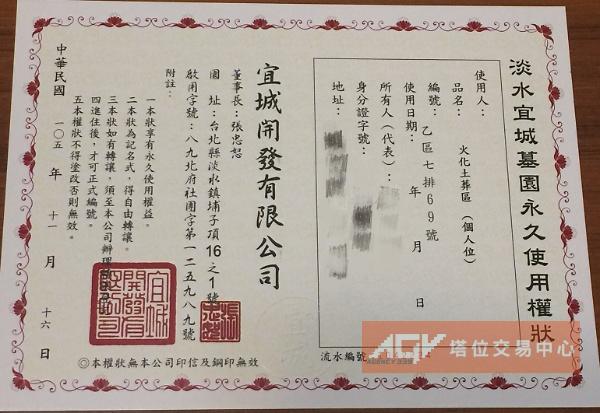 淡水宜城墓園永久使用權狀
使用人：
品名：火化土葬區（個人位）
編號：乙區七排69號
使用日期： 年 月 日
所有人（代表）：
身分證字號：
地址：
流水編號
宜城開發有限公司
董事長：張忠恕
園址：台北縣淡水鎮埔子頂16之1號
啟用字號：八九北府社團字第一二五九八九號
附註：
一本狀享有永久使用權益。
二本狀為記名式，得自由轉讓。
三本狀如有轉讓，須至本公司辦理
四進住後，才可正式編號。
五本權狀不得塗改否則無效。
中華民國 一○五 年 十一 月 十六 日
宜城開發有限公司
◎本權狀無本公司印信及鋼印無效
AGY 塔位交易中心